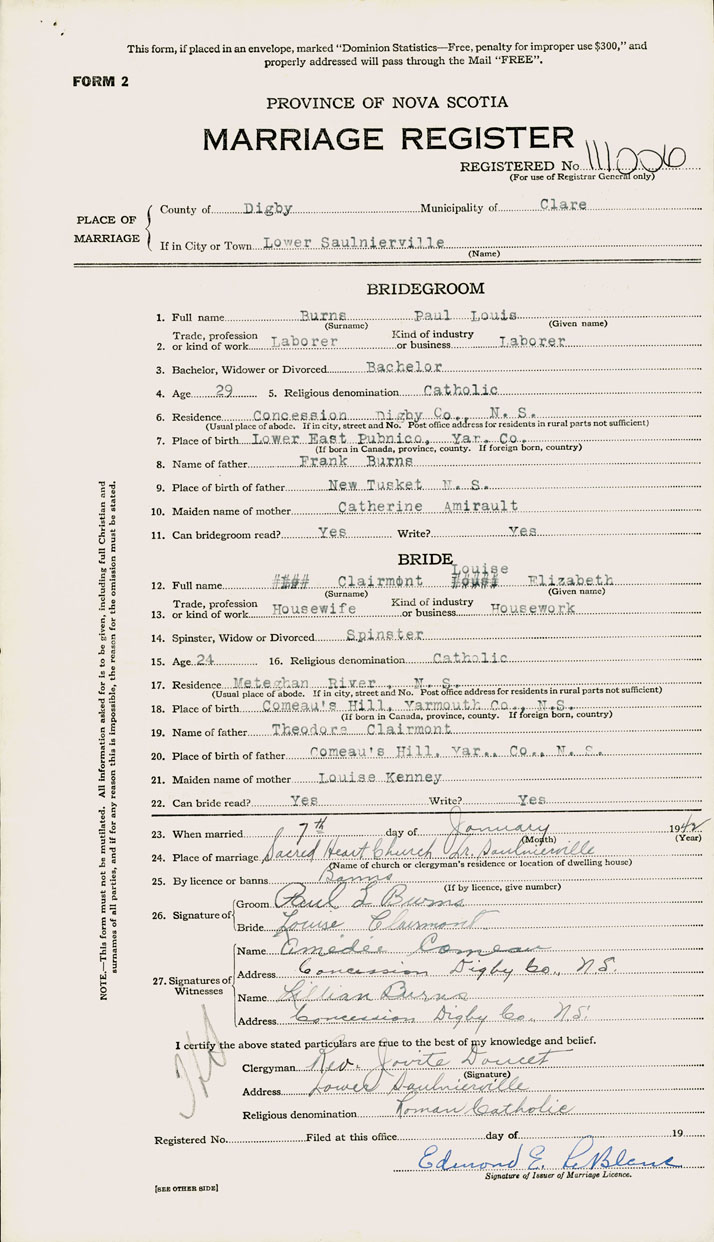 This form, if placed in an envelope, marked "Dominion Statistics—Free, penalty for improper use $300," and
properly addressed will pass through the Mail "FREE".
FORM 2
PROVINCE OF NOVA SCOTIA
MARRIAGE REGISTER
REGISTERED No 111006
(For use of Registrar General only)
PLACE OF MARRIAGE
County of Digby Municipality of Clare
If in City or Town Lower Saulnierville
(Name)
BRIDEGROOM
1. Full name Burns Paul Louis
(Surname) (Given name)
2. Trade, profession or kind of work Laborer Kind of industry or business Laborer
3. Bachelor, Widower or Divorced Bachelor
4. Age 29 5. Religious denomination Catholic
6. Residence Concession Digby Co., N. S.
(Usual place of abode. If in city, street and No. Post office address for residents in rural parts not sufficient)
7. Place of birth Lower East Pubnico, Yar. Co.
(If born in Canada, province, county. If foreign born, country)
8. Name of father Frank Burns
9. Place of birth of father New Tusket N. S.
10. Maiden name of mother Catherine Amirault
11. Can bridegroom read? Yes Write? Yes
BRIDE
Louise
12. Full name Clairmont Elizabeth
(Surname) (Given name)
13. Trade, profession or kind of work Housewife Kind of industry or business Housework
14. Spinster, Widow or Divorced Spinster
15. Age 24 16. Religious denomination Catholic
17. Residence Meteghan River, N. S.
(Usual place of abode. If in city, street and No. Post office address for residents in rural parts not sufficient)
18. Place of birth Comeau's Hill, Yarmouth Co., N.S.
(If born in Canada, province, county. If foreign born, country)
19. Name of father Theodore Clairmont
20. Place of birth of father Comeau's Hill, Yar., Co., N. S.
21. Maiden name of mother Louise Kenney
22. Can bride read? Yes Write? Yes
23. When married 7th day of January 1942
(Month) (Year)
24. Place of marriage Sacred Heart Church Lr. Saulnierville
(Name of church or clergyman's residence or location of dwelling house)
25. By licence or banns Banns
(If by licence, give number)
26. Signature of
Groom Paul L Burns
Bride Louise Clairmont
27. Signatures of Witnesses
Name Amedée Comeau
Address Concession Digby Co., N.S.
Name Lillian Burns
Address Concession Digby Co., N.S.
I certify the above stated particulars are true to the best of my knowledge and belief.
Clergyman Rev. Jovite Doucet
(Signature)
Address Lower Saulnierville
Religious denomination Roman Catholic
Registered No. Filed at this office day of 19
Edmond E. LeBlanc
Signature of Issuer of Marriage Licence.
[SEE OTHER SIDE]
NOTE.—This form must not be mutilated. All information asked for is to be given, including full Christian and
surnames of all parties, and if for any reason this is impossible, the reason for the omission must be stated.